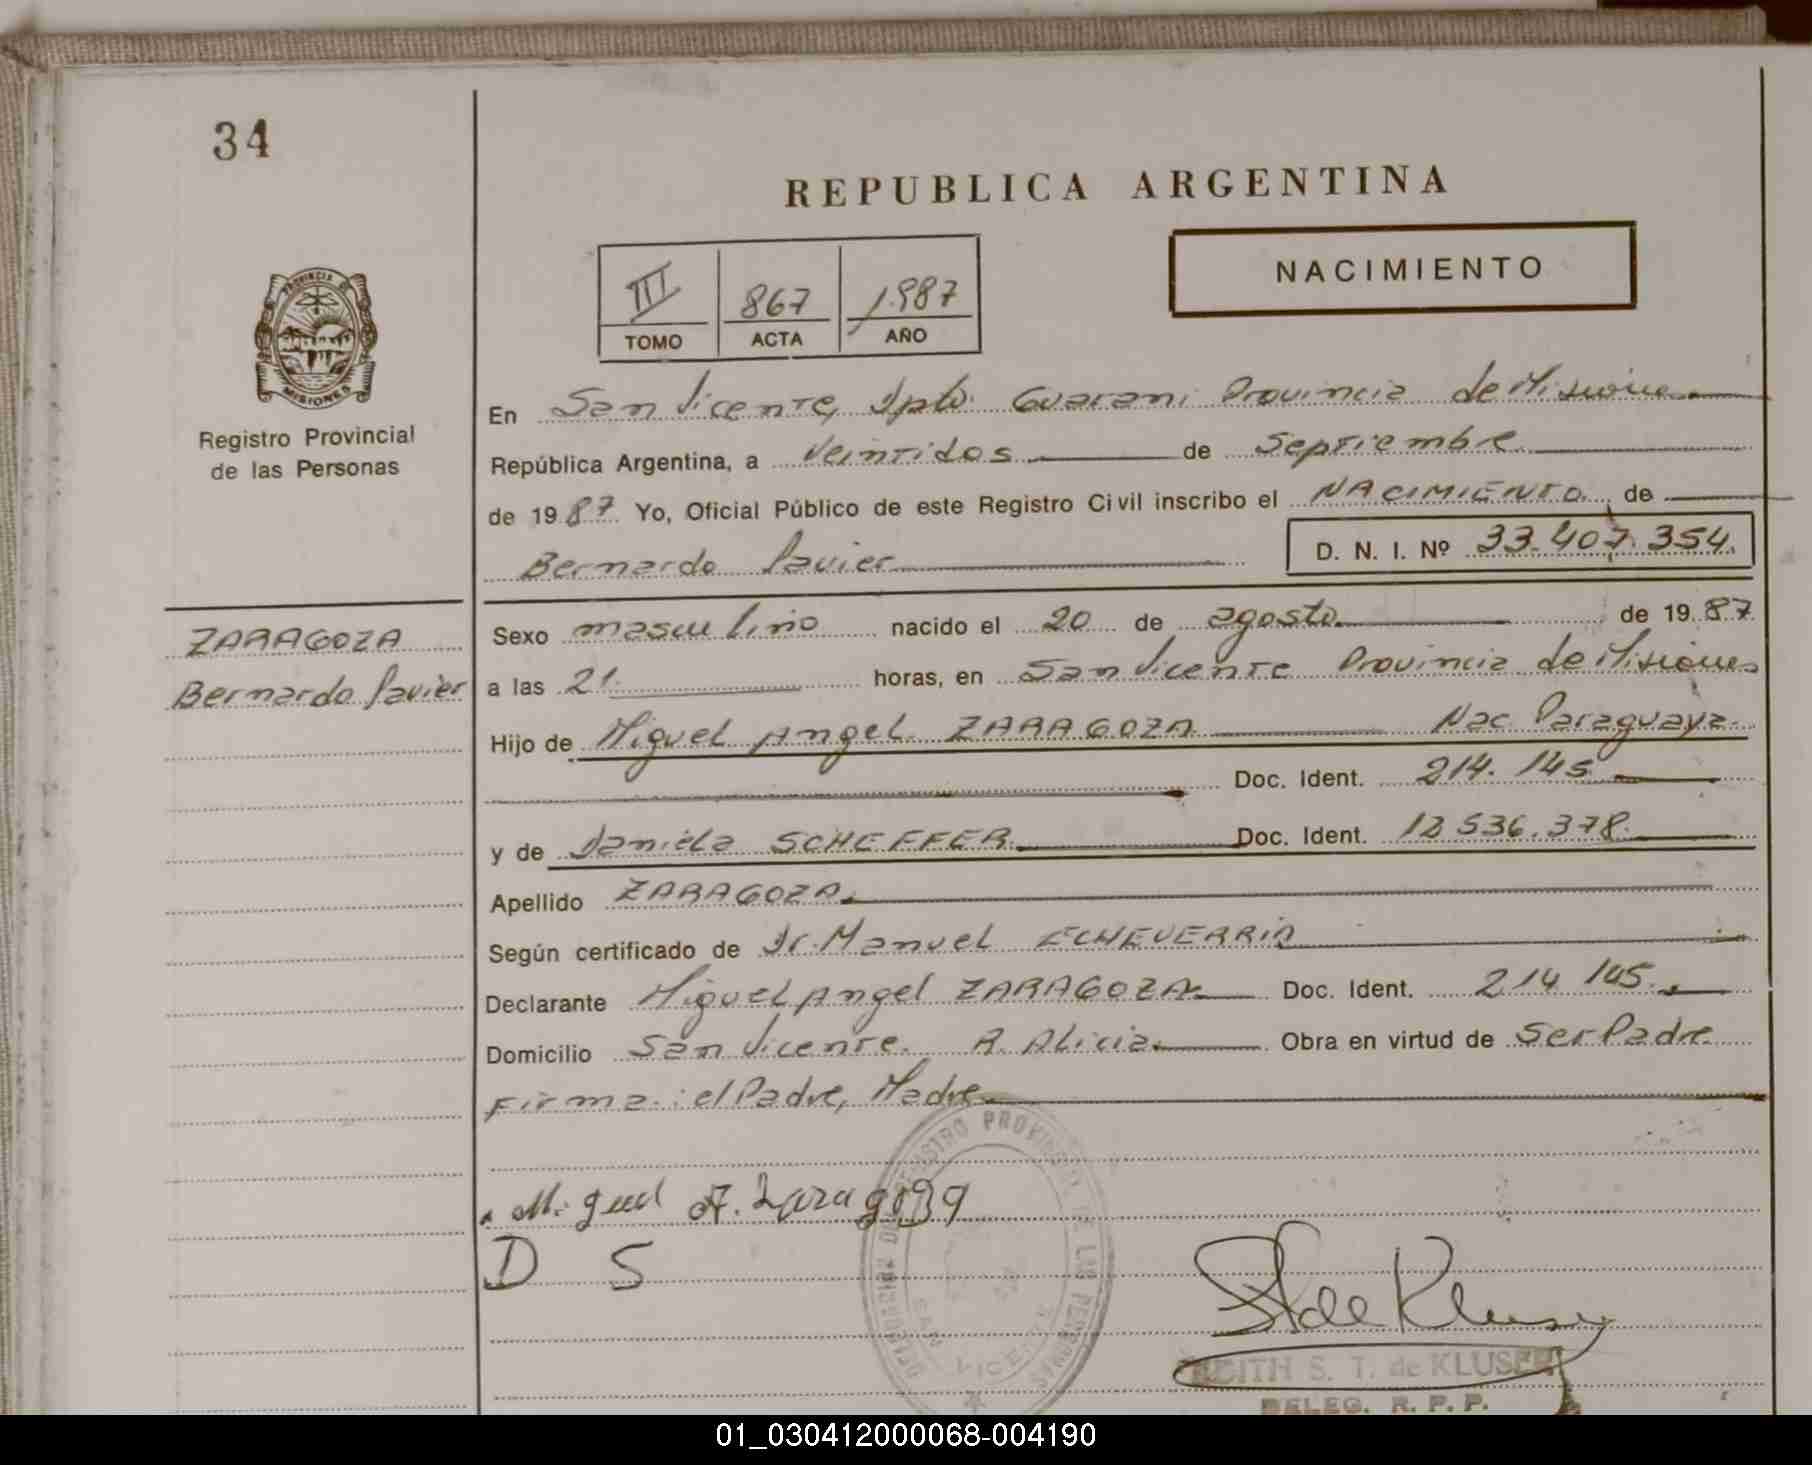 34
REPUBLICA ARGENTINA
NACIMIENTO
III 867 1987
TOMO ACTA AÑO
PROVINCIA DE
MISIONES
Registro Provincial
de las Personas
En San Vicente, Dpto. Guarani Provincia de Misiones
República Argentina, a Veintidos de Septiembre
de 1987 Yo, Oficial Público de este Registro Civil inscribo el NACIMIENTO de
Bernardo Javier D. N. I. Nº 33.407.354.
ZARAGOZA
Bernardo Javier
Sexo masculino nacido el 20 de agosto de 1987
a las 21. horas, en San Vicente Provincia de Misiones
Hijo de Miguel Angel ZARAGOZA Nac. Paraguaya
Doc. Ident. 214.145
y de Daniela SCHEFFER Doc. Ident. 12.536.378.
Apellido ZARAGOZA
Según certificado de Dr. Manuel ECHEVERRIA
Declarante Miguel Angel ZARAGOZA Doc. Ident. 214 145.
Domicilio San Vicente. R. Alicia Obra en virtud de Ser Padre
Firma: el Padre, Madre
Miguel A. Zaragoza
D S
REGISTRO PROVINCIAL DE LAS PERSONAS
SAN VICENTE
S. T. de Kluser
S. T. de KLUSER
DELEG. R. P. P.
01_030412000068-004190